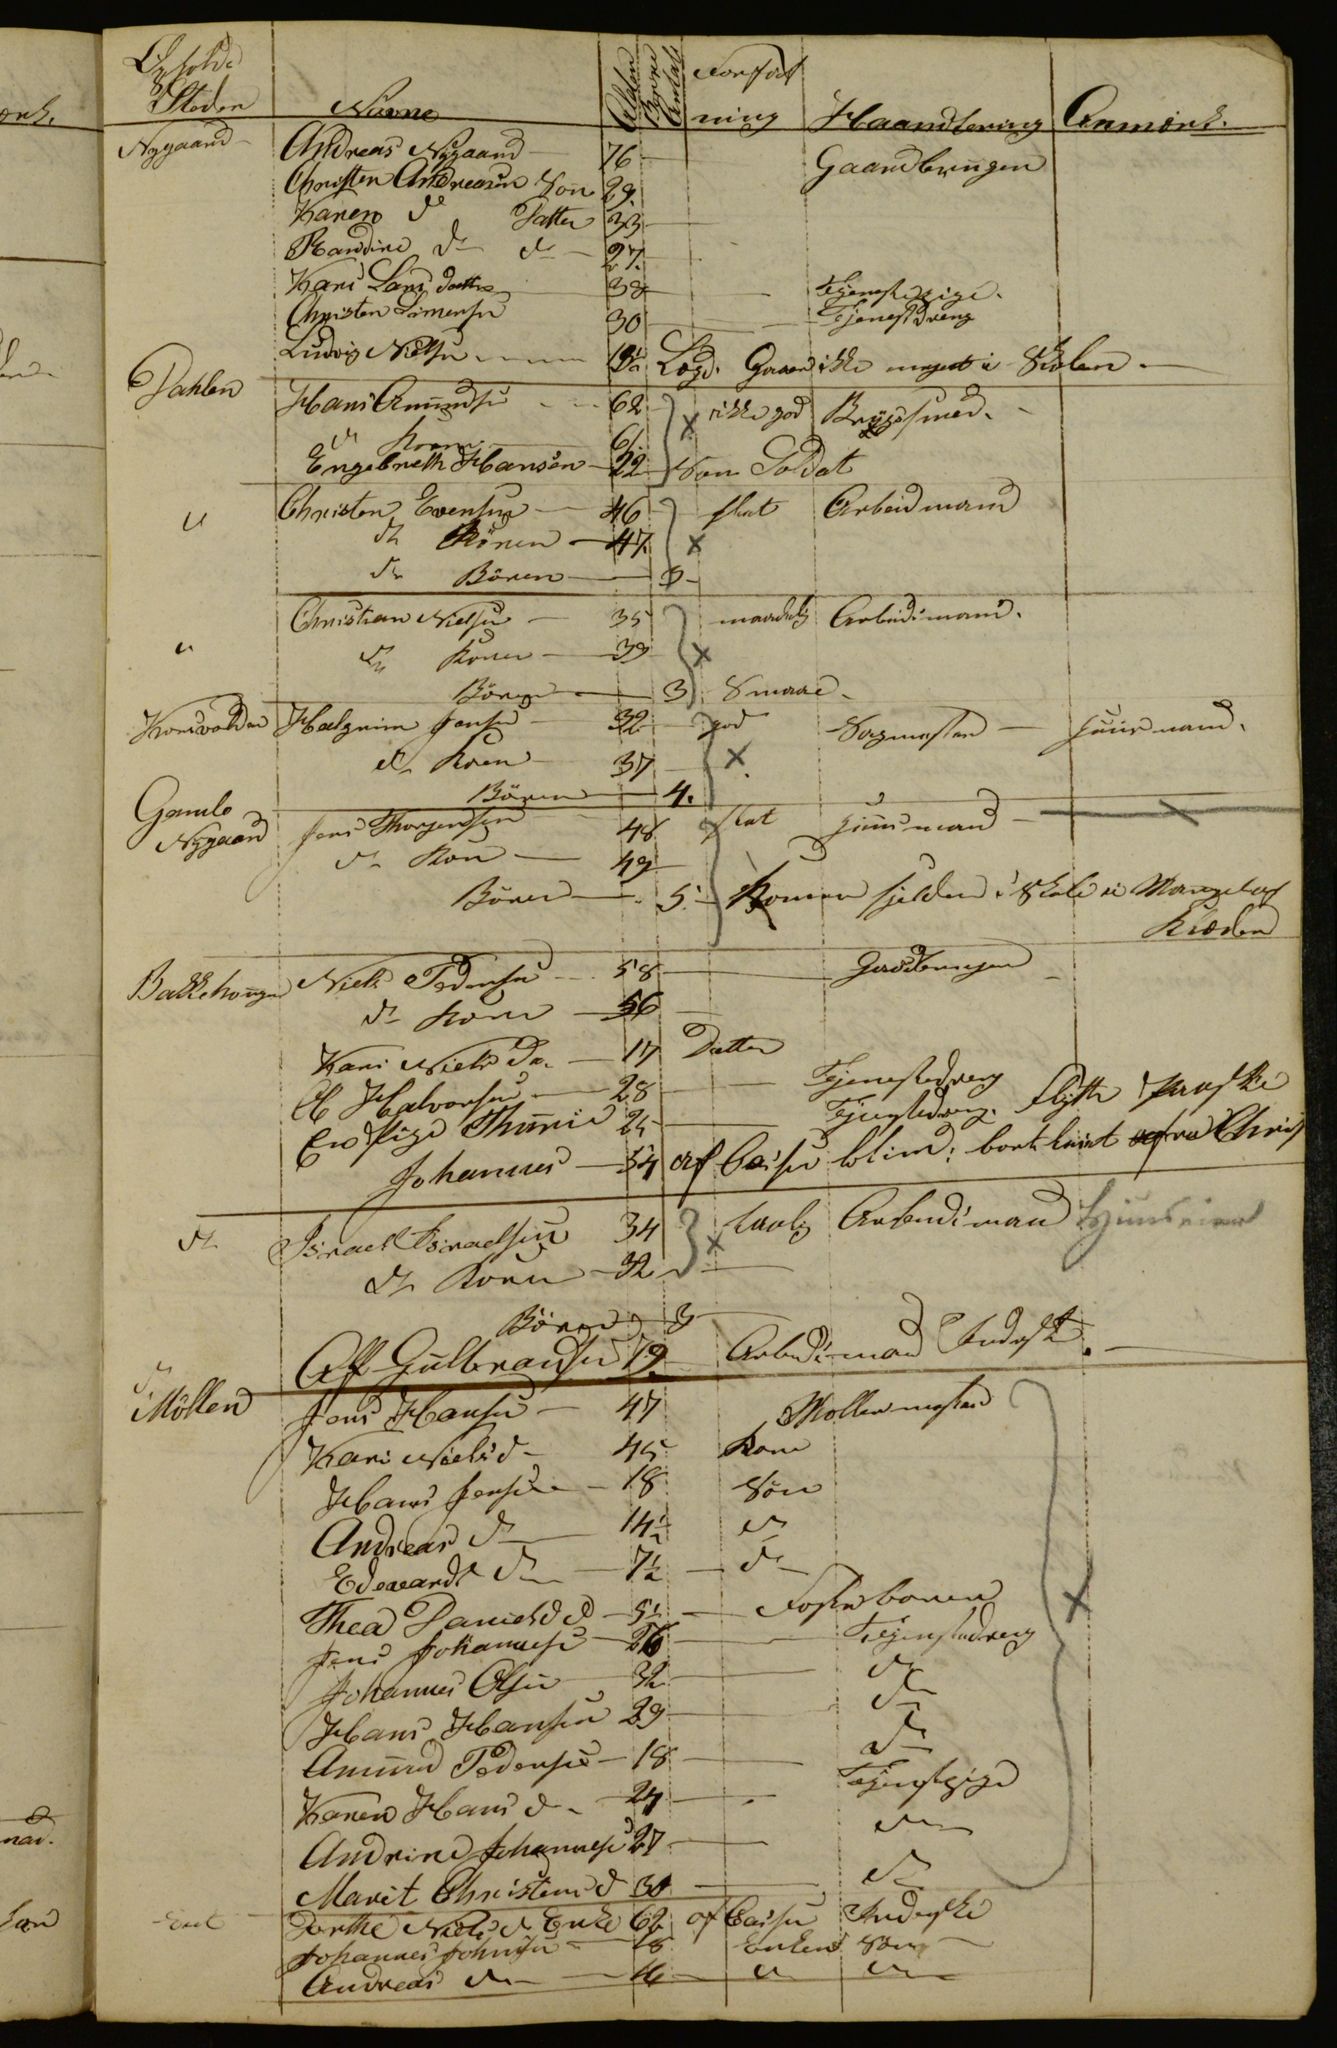 Opholds Steder Navne Alder Børne Antal Forfatning Haandtering Anmærk.
Nygaard Andreas Nygaard 76 Gaardbruger
Christen Andreasen Søn 29.
Karen do Datter 33
Randine do do 27.
Kari Lars datter 38 Tjenestepige.
Christen Simensen 30 Tjenestdreng
Ludvig Nielsen Lægd. Gaaer ikke meget i Skolen.
Dahlen Hans Amundsen 62 ikke god Bøgsesmed.
do Kone 61
Engebreth Hansen 22 Søn Soldat
" Christen Evensen 46 slet Arbeidmand
do Konen 47.
do Børen
" Christian Nielsen 35 maadelig Arbeidsmand.
do Konen 39
Børen 3 Smaae.
Halgrim Jensen 32 god Sagmester Huusmand.
do Konen 37
Børen 4.
Gamle Nygaard Jens Thorgersen 48 slet Huusmand
do Kone 49
Børen 5 Kommer sjelden i Skole Mangel af
Klæder
Bakkehougen Niels Pedersen 58 Gaardbruger
do Kone 56
Kari Niels Da. 17 Datter
Ole Halvorsen 28 Tjenestedreng
En Pige 24 Tjenstedreng. flytte
Johannes 54 af Caisen blind:
do Israel Israelsen 34 Arbeidsmand Huuseier
do Konen 32
Børen 3
Ole Gulbrandsen 79. Arbeidsmand Inderst.
Møllen Jens Hansen 47 Møllermester
Kari Niels d 45 Kone
Hans Jensen 18 Søn
Andreas do 14½ do
Edevardt do 7½ do
Thea Daniels d 5½ Foster barn
Jens Johannesen 26 Tjenestedreng
Johannes Olsen 32 do
Hans Hansen 29 do
Amund Pedersen 18 do
Karen Hans d. 24 Tjenestpige
Andrine Johannesd 27 do
Marit Christens d 30 do
Dorthe Niels d Enke 62 af Caisen Inderske
Johannes Johnsen 18 Enkens Søn
Andreas do 16 " "